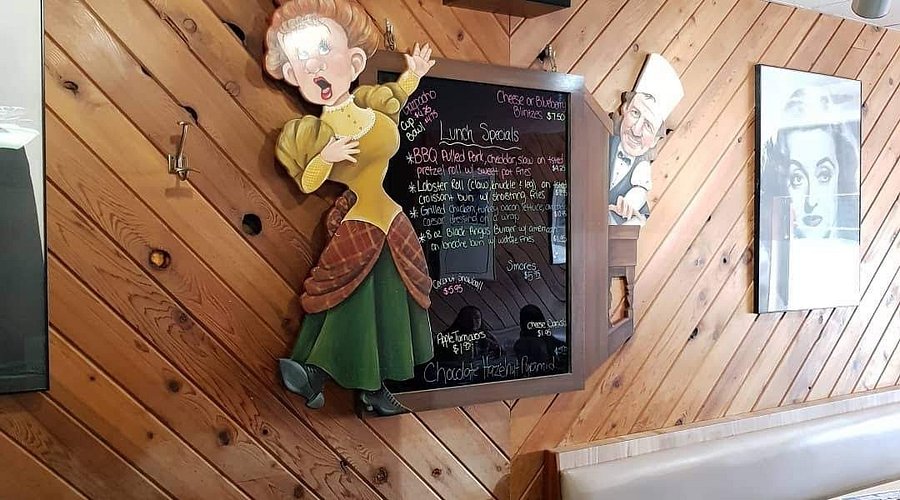 Gazpacho
Cup $4.25
Bowl $4.75
Cheese or Blueberry
Blintzes $7.50
Lunch Specials
*BBQ Pulled Pork, cheddar, slaw on
pretzel roll w/ sweet pot fries
*Lobster Roll (claw, knuckle & leg) on
croissant bun w/ shoestring fries
*Grilled chicken, turkey, bacon, lettuce,
caesar dressing on a wrap
*8 oz Black Angus Burger w/ american
on brioche bun w/ waffle fries
Smores
Coconut Snowball
$5.95
Apple Turnovers
Cheese Danish
Chocolate Hazelnut Pyramid